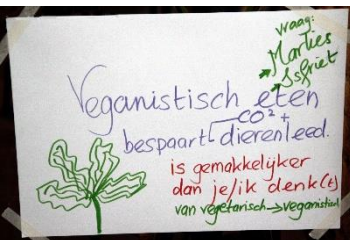 vraag:
Marlies
Isfriet
Veganistisch eten
CO² +
bespaart dierenleed.
is gemakkelijker
dan je/ik denk(t)
van vegetarisch → veganistisch